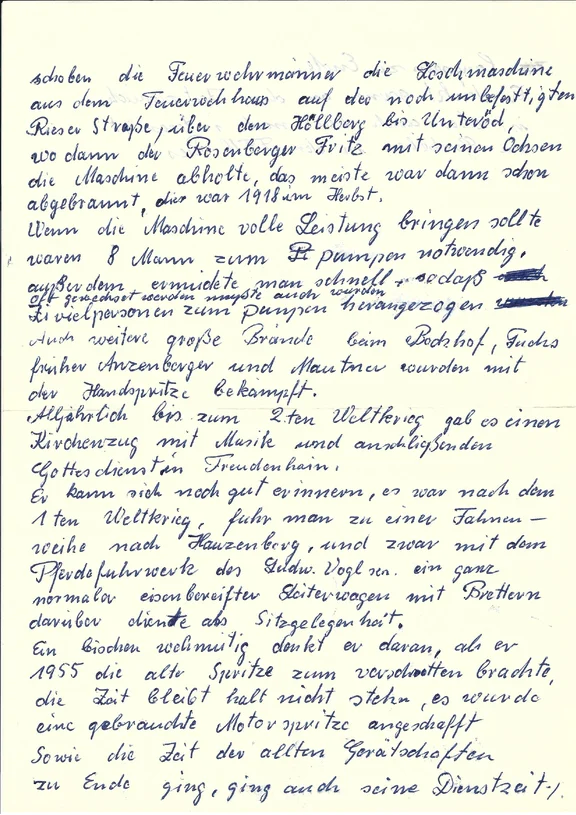 schoben die Feuerwehrmänner die Löschmaschine
aus dem Feuerwehhaus auf der noch unbefestigten
Rieser Straße, über den Höllberg bis Unteröd,
wo dann der Rosenberger Fritz mit seinen Ochsen
die Maschine abholte, das meiste war dann schon
abgebrannt, dies war 1918 im Herbst.
Wenn die Maschine volle Leistung bringen sollte
waren 8 Mann zum pumpen notwendig.
außerdem ermüdete man schnell, sodaß
oft gewechselt werden mußte auch wurden
Zivielpersonen zum pumpen herangezogen
Auch weitere große Brände beim Bockhof, Fuchs
früher Anzenberger und Mautner wurden mit
der Handspritze bekämpft.
Alljährlich bis zum 2.ten Weltkrieg gab es einen
Kirchenzug mit Musik und anschließenden
Gottesdienst in Freudenhain.
Er kann sich noch gut erinnern, es war nach dem
1 ten Weltkrieg, fuhr man zu einer Fahnen-
weihe nach Hauzenberg, und zwar mit dem
Pferdefuhrwerk des Ludw. Vogl sen. ein ganz
normaler eisenbereifter Leiterwagen mit Brettern
darüber diente als Sitzgelegenheit.
Ein bischen wehmutig denkt er daran, als er
1955 die alte Spritze zum verschrotten brachte,
die Zeit bleibt halt nicht stehn, es wurde
eine gebrauchte Motorspritze angeschafft
Sowie die Zeit der allten Gerätschaften
zu Ende ging, ging auch seine Dienstzeit